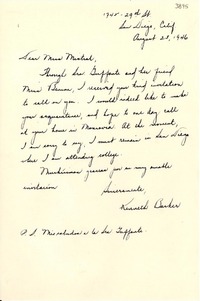 3895
1945 - 29th St
San Diego, Calif
August 23, 1946
Dear Miss Mistral,
Through Sra Guffanti and her friend
Miss I received your kind invitation
to call on you. I would indeed like to make
your acquaintance, and hope to one day call
at your home in Monrovia. At the moment,
I am sorry to say, I must remain in San Diego
where I am attending college.
Muchísimas gracias por su muy amable
invitación
Sinceramente,
Kenneth Barker
P.S. Mis saludos a la Sra Guffanti.